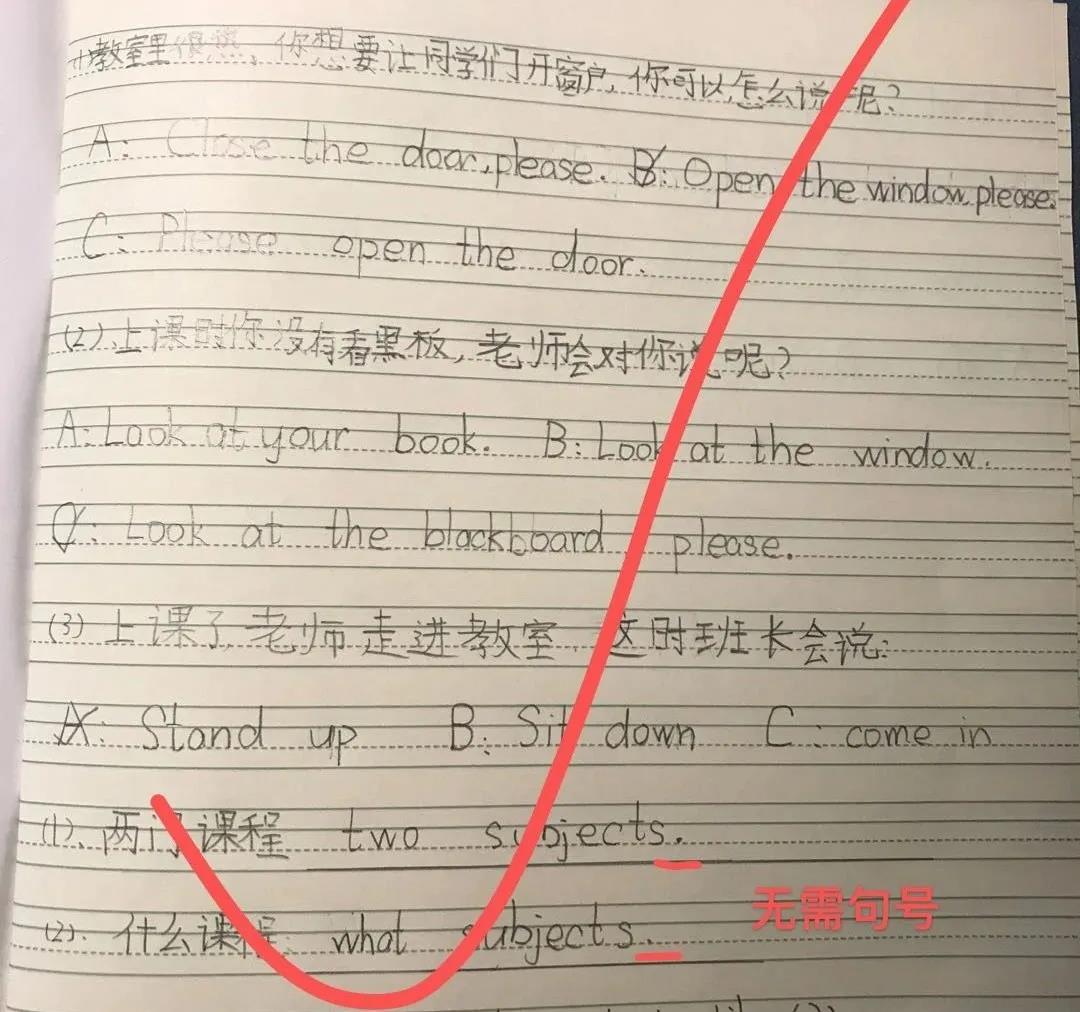 (1)教室里很热，你想要让同学们开窗户，你可以怎么说呢？
A: Close the door,please. B: Open the window,please.
C: Please open the door.
(2)、上课时你没有看黑板，老师会对你说呢？
A: Look at your book. B: Look at the window.
C: Look at the blackboard please.
(3)上课了，老师走进教室，这时班长会说：
A: Stand up B: Sit down C: come in
(1)、两门课程 two subjects.
无需句号
(2)、什么课程 what subjects.